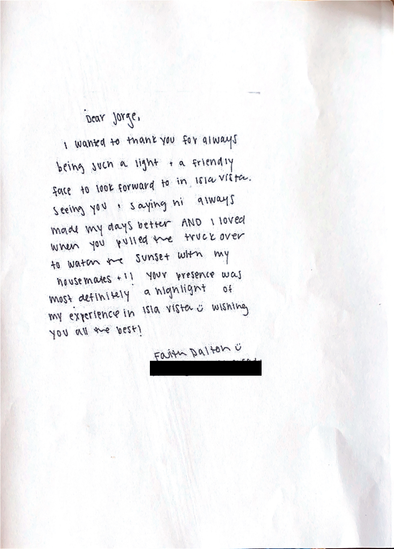 Dear Jorge,
I wanted to thank you for always
being such a light + a friendly
face to look forward to in Isla Vista.
Seeing you + saying hi always
made my days better AND I loved
when you pulled the truck over
to watch the sunset with my
housemates + I! Your presence was
most definitely a highlight of
my experience in Isla Vista :) wishing
you all the best!
Faith Dalton :)